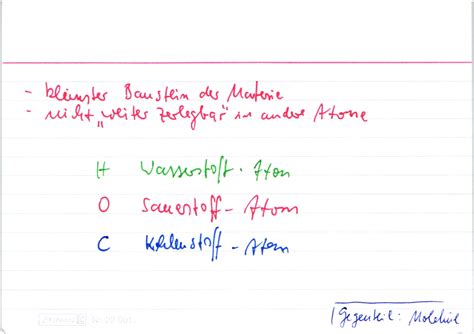 - kleinster Baustein der Materie
- nicht „weiter zerlegbar" in andere Atome
H Wasserstoff-Atom
O Sauerstoff-Atom
C Kohlenstoff-Atom
Gegenteil: Moleküle